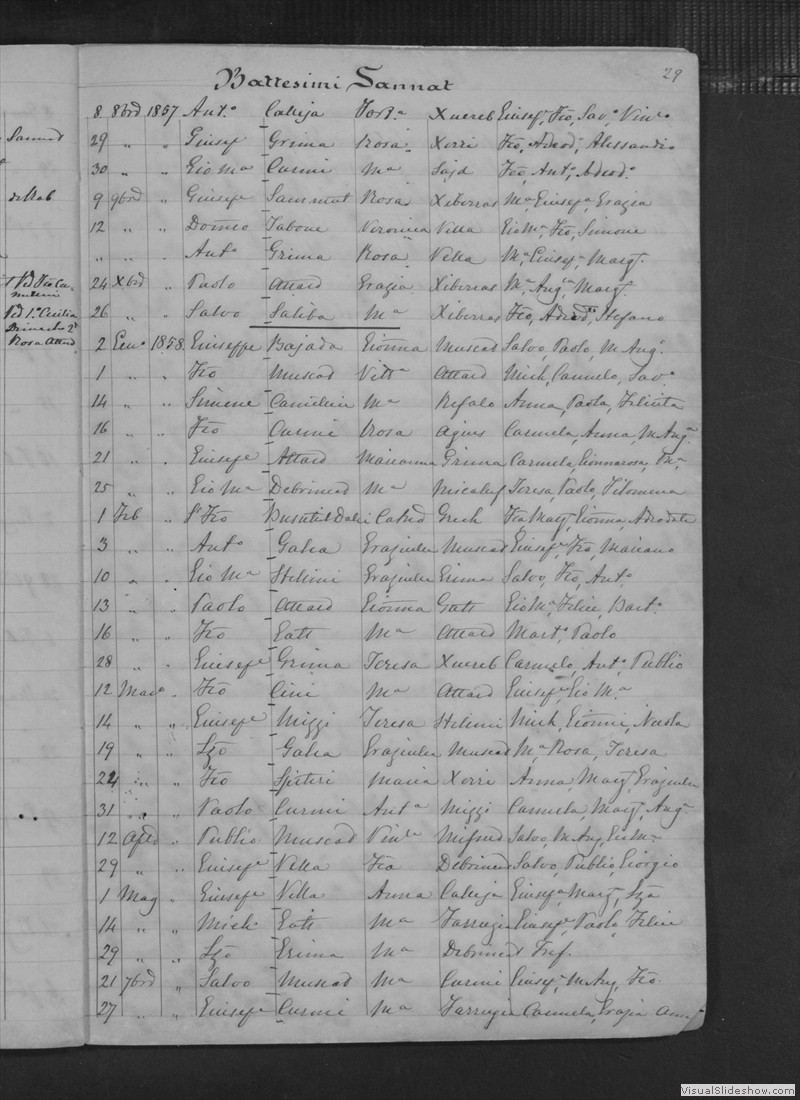 29
Battesimi Sannat
8 8bre 1857 Ant.o Calleja Xuereb Giusef, Fco, Sav.o, Vin.o
29 " " Giusef Grima Rosa Xorri Fco, Adeod.o, Alessandro
30 " " Gio Ma Curmi Ma Sajd Fco, Ant.o, Adeod.o
Sannat
9 9bre " Giusepe Sammut Rosa Xiberras Ma, Giusepa, Grazia
12 " " Domco Tabone Veronica Vella Gio Ma, Fco, Simone
" " " Ant.o Grima Rosa Vella Ma, Giusepa, Marg.
24 Xbre " Paolo Attard Grazia Xiberras Ma, Ang.a, Marg.
26 " " Salvo Saliba Ma Xiberras Fco, Adeod.o, Stefano
Rosa Attard
2 Gen.o 1858. Giuseppe Bajada Gionna Muscad Salvo, Paolo, M Ang.o
1 " " Fco Muscad Vitt.a Attard Mich, Carmelo, Sav.o
14 " " Simone Camilleri Ma Refalo Anna, Paola, Felicita
16 " " Fco Curmi Rosa Agius Carmela, Anna, M Ang.a
21 " " Giusepe Attard Marianna Grima Carmela, Gionnarosa
25 " " Gio Ma Debrincad Ma Teresa, Paolo, Filomena
1 Feb " Fco Grech Marg, Gionna, Adeodata
3 " " Ant.o Galea Graziulla Muscad Giusepe, Fco, Mariano
10 " " Gio Ma Stellini Graziulla Grima Salvo, Fco, Ant.o
13 " " Paolo Attard Gionna Gatt Gio Ma, Felice, Bart.o
16 " " Fco Gatt Ma Attard Mart.o, Paolo
28 " " Giusepe Grima Teresa Xuereb Carmelo, Ant.o, Publio
12 Marzo " Fco Cini Ma Attard Giusepe, Gio Ma
14 " " Giusepe Mizzi Teresa Stellini Mich, Gionni, Nicola
19 " " Lzo Galea Graziulla Muscad Ma Rosa, Teresa
24 " " Fco Spiteri Maria Xorri Anna, Marg, Graziulla
31 " " Paolo Curmi Ant.a Mizzi Carmela, Marg, Ang.
12 Aple " Publio Muscad Vin.a Mifsud Salvo, M Ang, Gio Ma
29 " " Giusepe Vella Fca Debrincad Salvo, Publio, Giorgio
1 Mag " Giusepe Vella Anna Calleja Giusepa, Marg, Lza
14 " " Mich Gatt Ma Farrugia Giusepe, Paolo, Felice
29 " " Lzo Grima Ma Debrincad
21 7bre " Salvo Muscad Ma Curmi Giusepe, M Ang, Fco
27 " " Giusepe Curmi Ma Farrugia Carmela, Grazia
VisualSlideshow.com